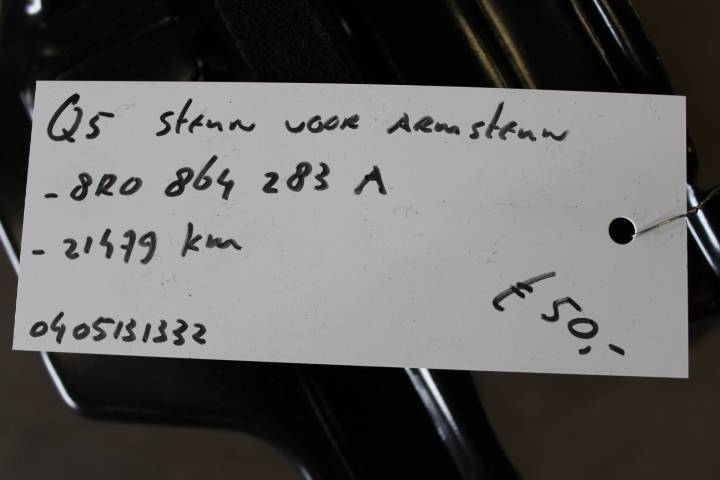 Q5 steun voor Armsteun
- 8R0 864 283 A
- 21479 km
€ 50,-
0405131332